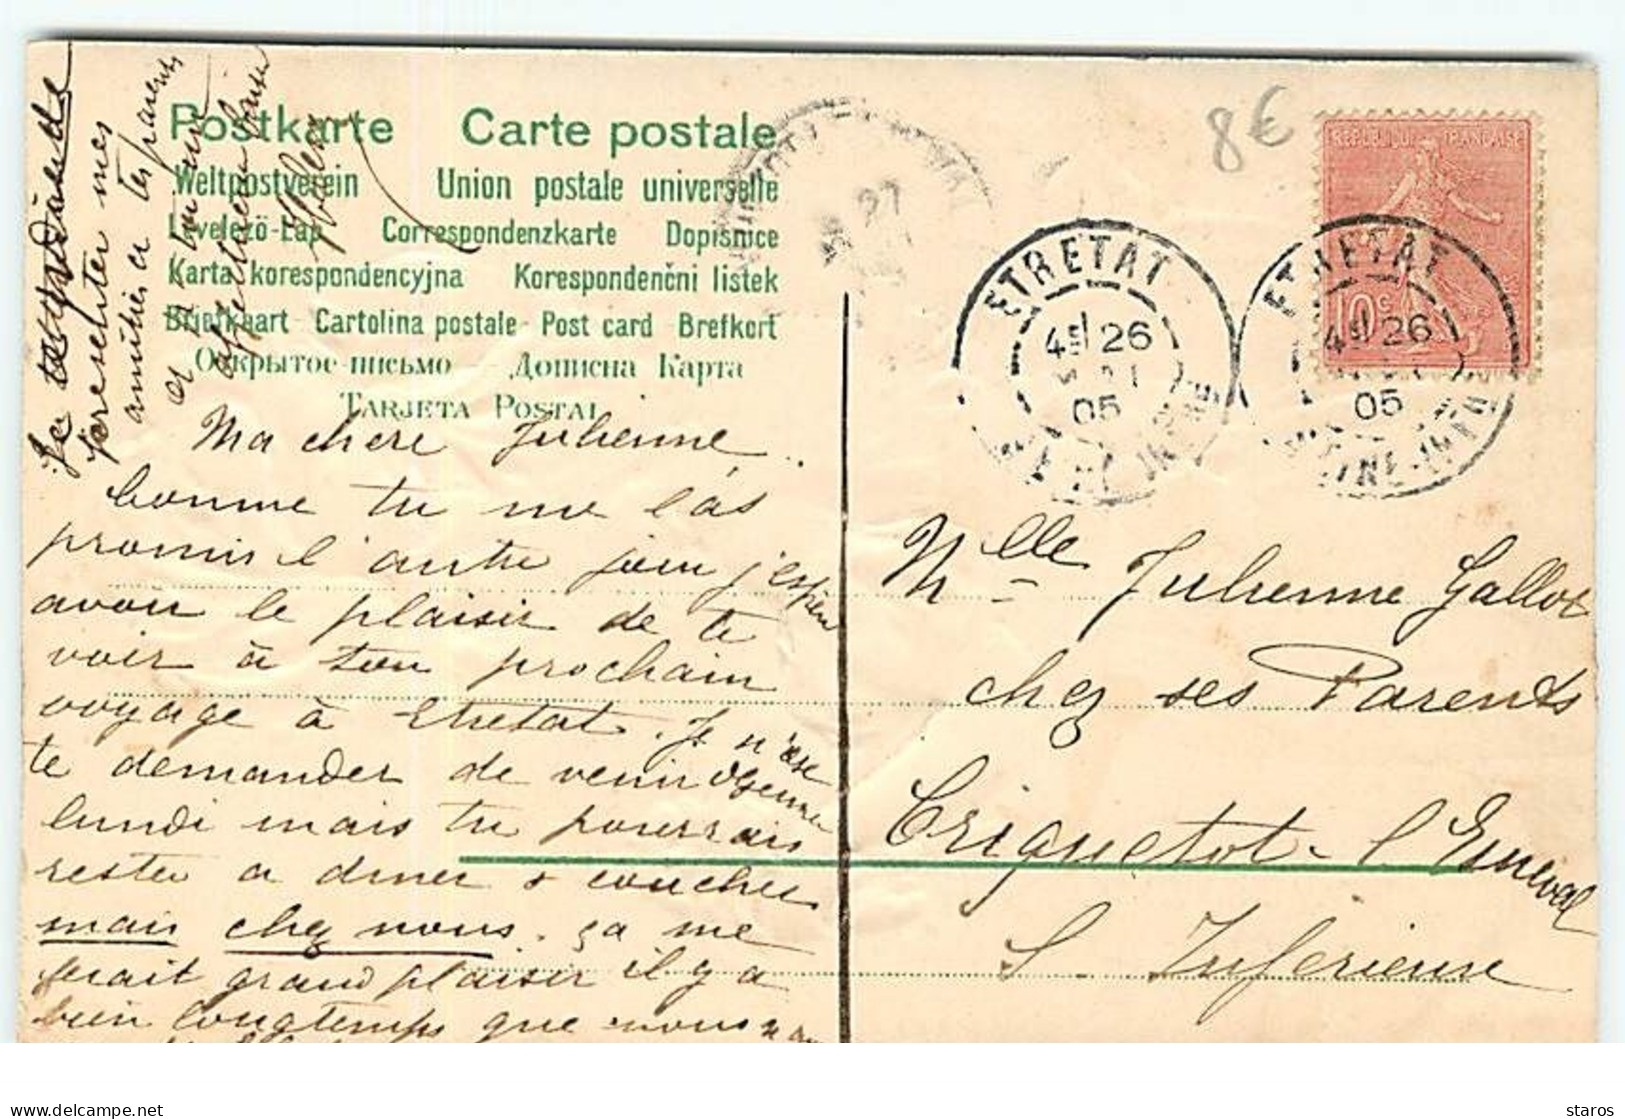 Postkarte Carte postale
Weltpostverein Union postale universelle
Levelező-Lap Correspondenzkarte Dopisnice
Karta korespondencyjna Korespondenční listek
Briefkaart - Cartolina postale - Post card Brefkort
Открытое письмо - Дописна Карта
TARJETA POSTAL
8€
REPUBLIQUE FRANÇAISE
10c
ETRETAT
4E 26
05
SEINE-INFRE
ETRETAT
4E 26
05
SEINE-INFRE
27
présenter mes
amitiés a tes parents
et
Ma chere Julienne
comme tu me l'as
promis l'autre jour j'espère
avoir le plaisir de te
voir à ton prochain
voyage à Etretat. Je n'ose
te demander de venir
lundi mais tu pourrais
rester a diner & coucher
mais chez nous. ça me
ferait grand plaisir il y a
bien longtemps que nous n'av
Mlle Julienne Gallot
chez ses Parents
Criquetot-l'Esneval
S. Inferieure
delcampe.net
staros